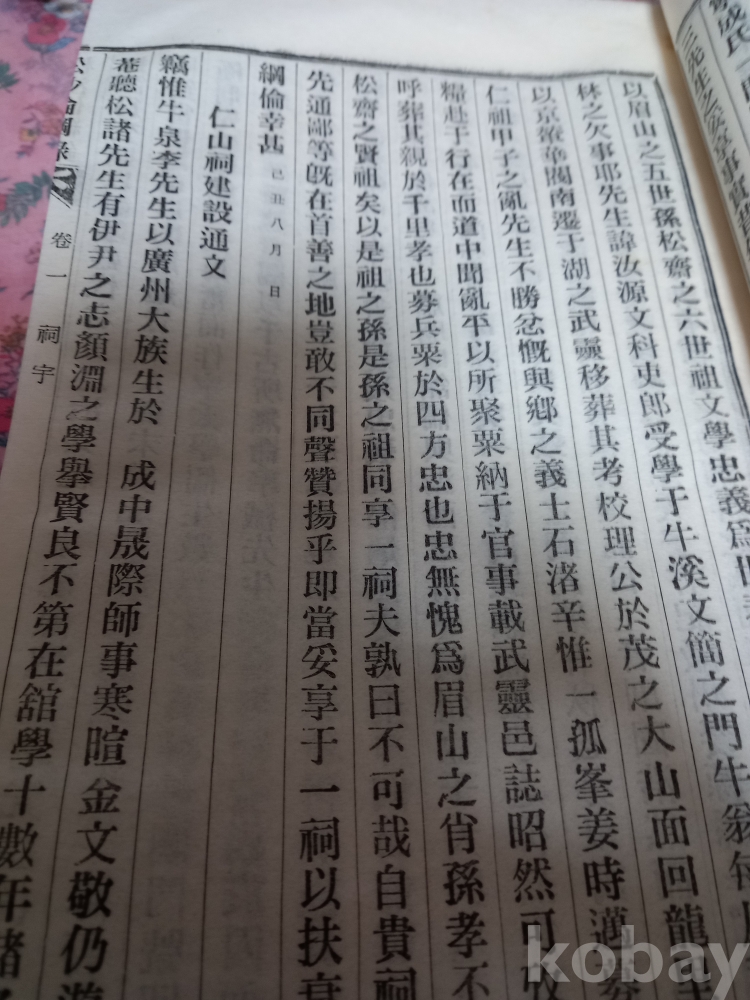 成氏
三先生之
以眉山之五世孫松齋之六世祖文學忠義爲世
林之欠事耶先生諱汝源文科吏郎受學于牛溪文簡之門牛翁每
以京 閥南遷于湖之武靈移葬其考校理公於茂之大山面回龍
仁祖甲子之亂先生不勝忿慨與鄉之義士石渚辛惟一孤峯姜時邁募
糧赴于行在而道中聞亂平以所聚粟納于官事載武靈邑誌昭然可攷
呼葬其親於千里孝也募兵粟於四方忠也忠無愧爲眉山之肖孫孝不
松齋之賢祖矣以是祖之孫是孫之祖同享一祠夫孰曰不可哉自貴祠
先通鄙等旣在首善之地豈敢不同聲贊揚乎即當妥享于一祠以扶衰
綱倫幸甚 己丑八月 日
仁山祠建設通文
竊惟牛泉李先生以廣州大族生於 成中晟際師事寒暄金文敬仍游
菴聽松諸先生有伊尹之志顏淵之學擧賢良不第在舘學十數年諸
卷一 祠宇
kobay